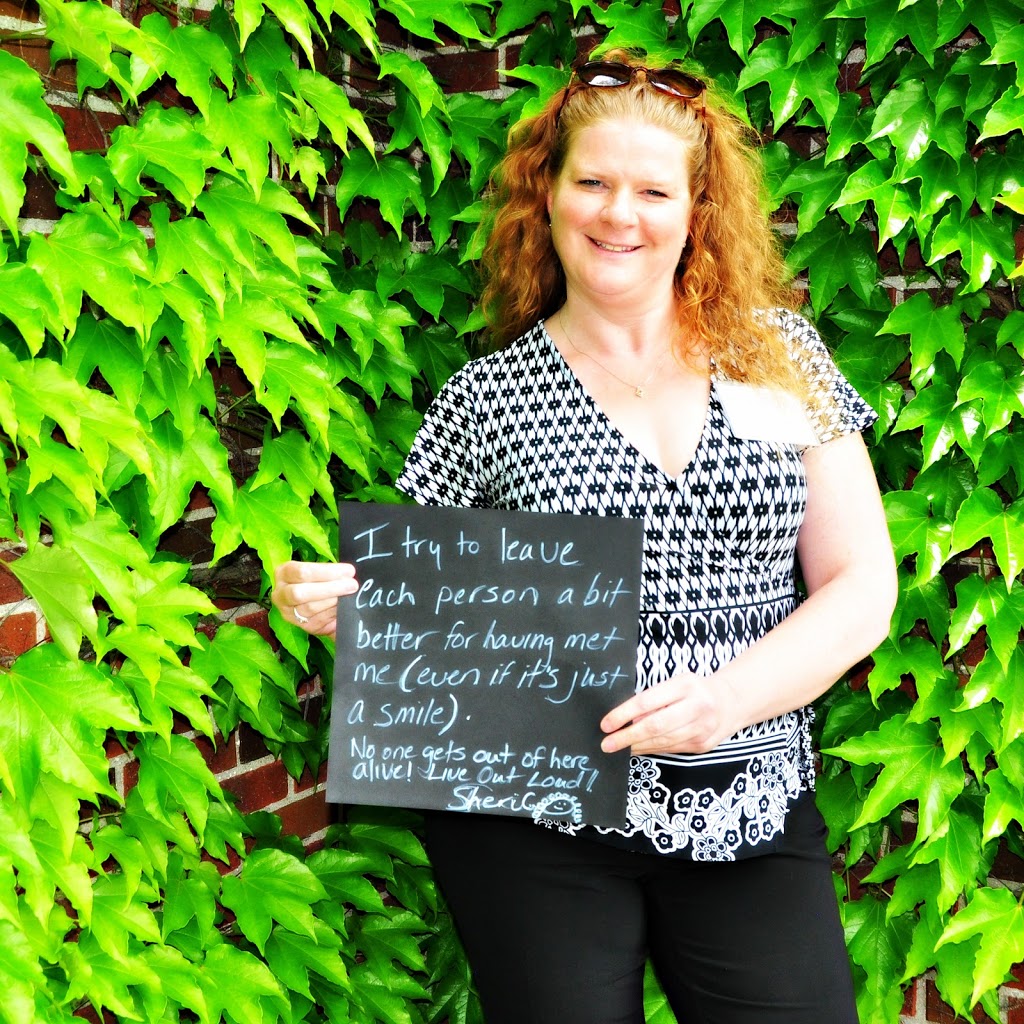 I try to leave
each person a bit
better for having met
me (even if it's just
a smile).
No one gets out of here
alive! Live Out Loud!
Sheri G